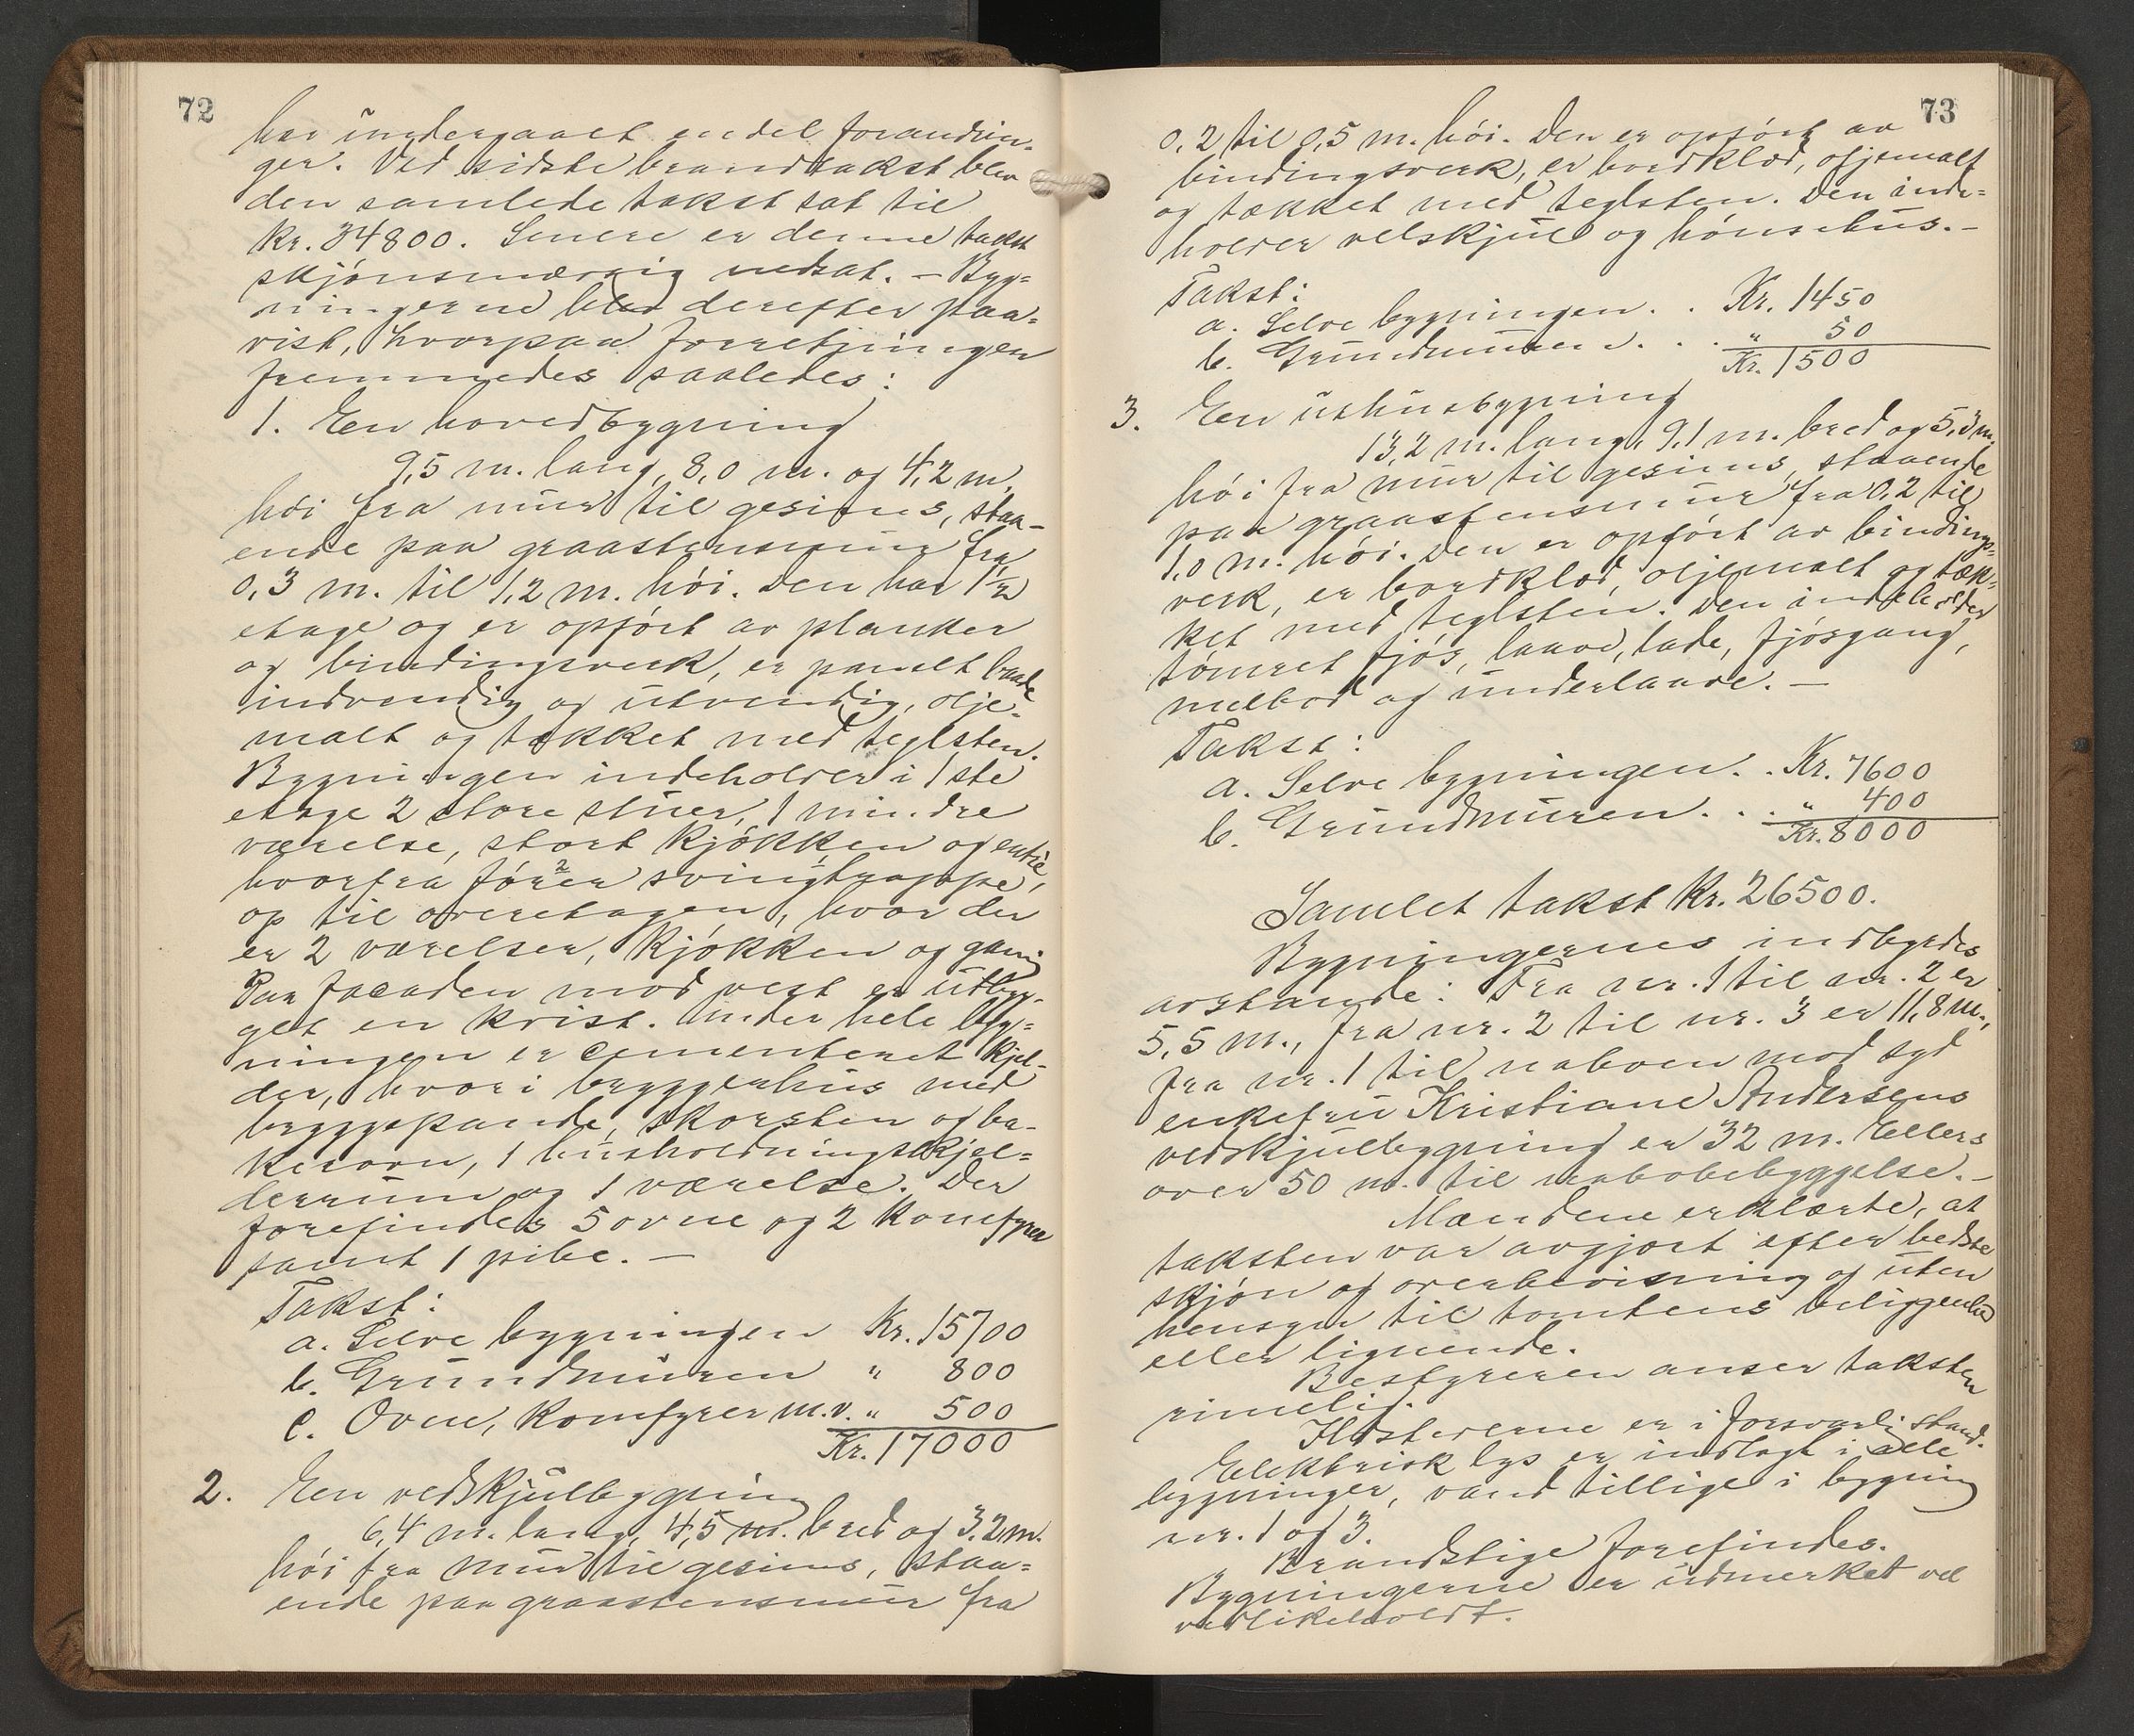 72
har undergaaet endel forandrin-
ger. Ved sidste brandtakst blev
den samlede takst sat til
kr. 34800. Senere er denne takst
skjönsmæssig nedsat. — Byg=
ningerne blev derefter paa=
vist, hvorpaa forretningen
fremmedes saaledes:
1. En hovedbygning
9,5 m. lang, 8,0 m. og 4,2 m.
höi fra mur til gesims, staa-
ende paa graastensmur fra
0,3 m. til 1,2 m. höi. Den har 1½
etage og er opfört av planker
og bindingsverk, er panelt baade
indvendig og utvendig, olje-
malt og tækket med teglsten.
Bygningen indeholder i 1ste
etage 2 store stuer, 1 mindre
værelse, stort kjökken og entré,
hvorfra förer 2 svingtrappe,
op til overetagen, hvor der
er 2 værelser, kjökken og gang
Paa facaden mod vest er utbyg-
get en kvist. Under hele byg=
ningen er cementeret kjel-
der, hvori bryggerhus med
bryggepande, skorsten og ba-
kerovn, 1 husholdningskjel=
derrum og 1 værelse. Der
forefindes 5 ovne og 2 komfyrer
samt 1 pibe. —
Takst:
a. Selve bygningen Kr. 15700
b. Grundmuren " 800
c. Ovne, komfyrer m.v. " 500
Kr. 17000
2. En vedskjulbygning
6,4 m. lang, 4,5 m. bred og 3,2 m.
höi fra mur til gesims, staa=
ende paa graastensmur fra
73
0,2 til 0,5 m. höi. Den er opfört av
bindingsverk, er bordklæd, oljemalt
og tækket med teglsten. Den inde=
holder vedskjul og hönsehus. —
Takst:
a. Selve bygningen. . Kr. 1450
b. Grundmuren. . . " 50
Kr. 1500
3. En uthusbygning
13,2 m. lang, 9,1 m. bred og 5,3 m.
höi fra mur til gesims, staaende
paa graastensmur fra 0,2 til
1,0 m. höi. Den er opfört av bindings=
verk, er bordklæd, oljemalt og tæk=
ket med teglsten. Den indeholder
tömret fjös, laave, lade, fjösgang,
melbod og underlaave. —
Takst:
a. Selve bygningen. . Kr. 7600
b. Grundmuren. . . " 400
Kr. 8000
Samlet takst Kr. 26500.
Bygningernes indbyrdes
avstande: Fra nr. 1 til nr. 2 er
5,5 m., fra nr. 2 til nr. 3 er 11,8 m.,
fra nr. 1 til naboen mod syd
enkefru Kristiane Andersens
vedskjulbygning er 32 m. Ellers
over 50 m. til nabobebyggelse. —
Mændene erklærte, at
taksten var avgjort efter bedste
skjön og overbevisning og uten
hensyn til tomtens beliggenhed
eller lignende.
Bestyreren anser taksten
rimelig.
Ildstederne er i forsvarlig stand.
Elektrisk lys er indlagt i alle
bygninger, vand tillige i bygning
nr. 1 og 3.
Brandstige forefindes.
Bygningerne er udmerket vel
vedlikeholdt.